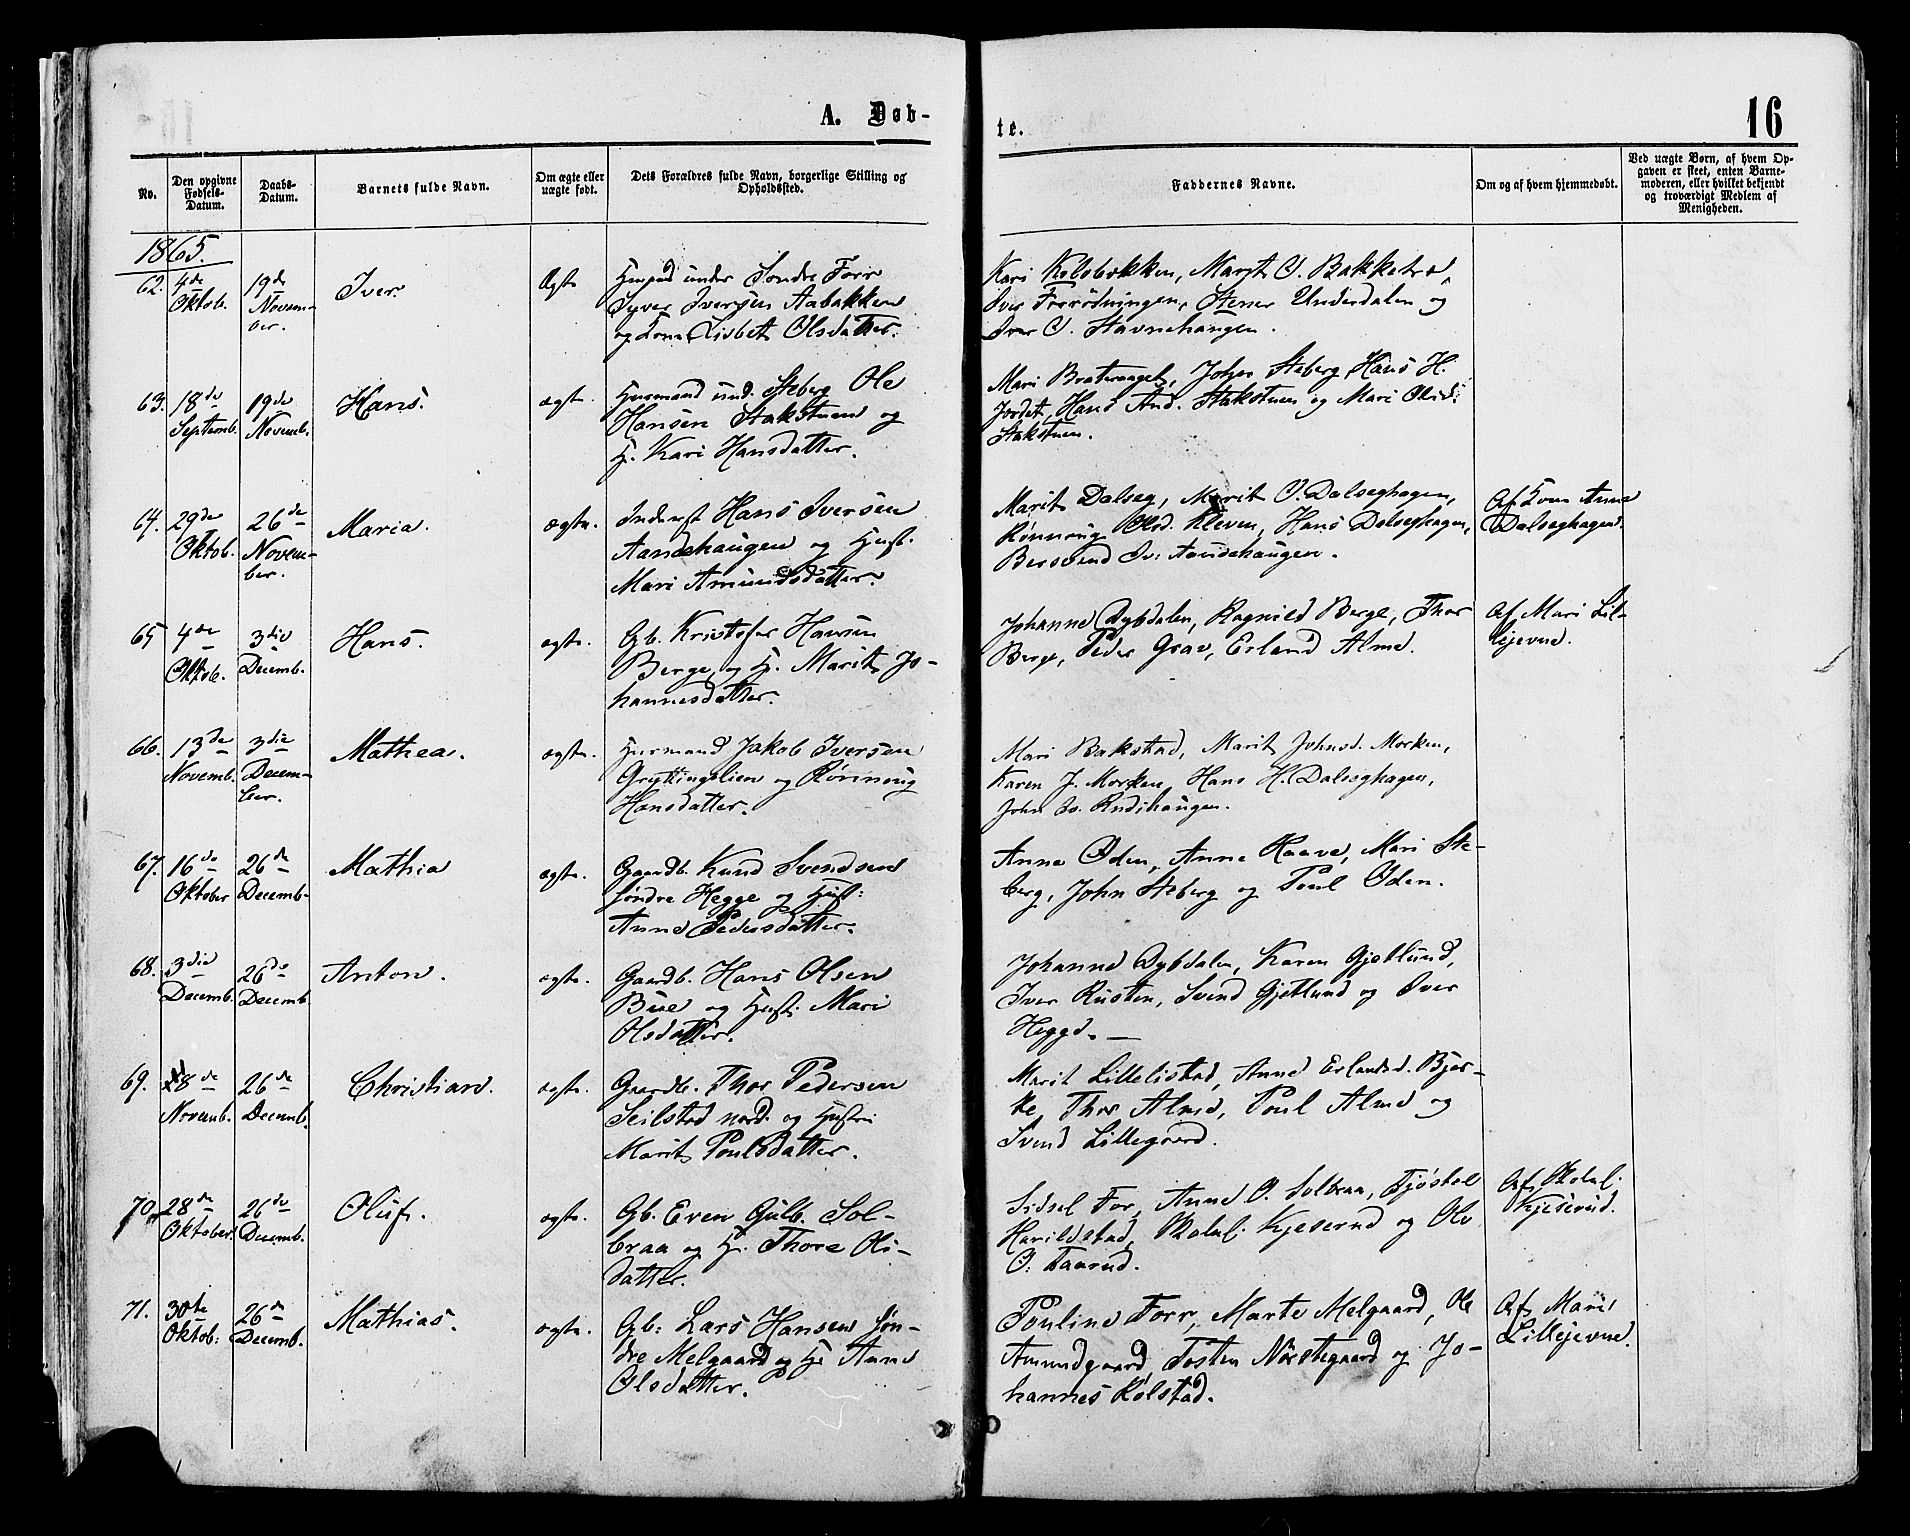 A. Døb-
te.
16
No.
Den opgivne
Fødsels-
Datum.
Daabs-
Datum.
Barnets fulde Navn.
Om ægte eller
uægte født.
Dets Forældres fulde Navn, borgerlige Stilling og
Opholdssted.
Faddernes Navne.
Om og af hvem hjemmedøbt.
Ved uægte Børn, af hvem Op-
gaven er skeet, enten Barne-
moderen, eller hvilket bekjendt
og troværdigt Medlem af
Menigheden.
1865.
62. 4de
Oktob.
19de
Novem-
ber.
Iver.
Ægte
under Søndre Forr
Syver Iversen Aabakken
og Kone Lisbet Olsdatter.
Kari Kolobækken, Marit O. Bakketrø,
Iver Forrødningen, Stener Underdalen og
Iver O. Stavnehaugen.
63. 18de
Septemb.
19de
Novemb.
Hans.
ægte.
Husmand und. Steberg Ole
Hansen Stakstuen og
H. Kari Hansdatter.
Mari Bratvanget, John Steberg, Hans H.
Jordet, Hans And. Stakstuen og Mari Olsd.
Stakstuen.
64. 29de
Oktob.
26de
Novem-
ber.
Maria.
ægte.
Inderst Hans Iversen
Aandehaugen og Hust.
Mari Amundsdatter.
Marit Dalseg, Marit O. Dalseghagen,
Rønnoug Olsd. Kleven, Hans Dalseghagen,
Bersvend Iv: Aandehaugen.
Af Kone Anne
Dalseghagen.
65 4de
Oktob.
3die
Decemb.
Hans.
ægte.
Gb. Kristofer Hansen
Berge, og H. Marit Jo-
hannesdatter.
Johanne Dybdalen, Ragnild Berge, Thor
Berge, Peder Grav, Erland Alme.
Af Mari Lil-
lejevne.
66. 13de
Novemb.
3die
Decem-
ber.
Mathea.
ægte.
Husmand Jakob Iversen
Gryttingslien og Rønnoug
Hansdatter.
Mari Bakstad, Marit Johnsd. Morken,
Karen J. Morken, Hans H. Dalseghagen,
John Iv. Rudihaugen.
67. 16de
Oktober
26de
Decemb.
Mathia
ægte.
Gaardb. Knud Svendsen
søndre Hegge og Hust:
Anne Pedersdatter.
Anne Oden, Anne Haave, Mari Ste-
berg, John Steberg og Poul Oden.
68. 3die
Decemb.
26de
Decemb.
Anton.
ægte.
Gaardb. Hans Olsen
Bue og Hust: Mari
Olsdatter.
Johanne Dybdalen, Karen Gjetlund,
Iver Rusten, Svend Gjetlund og Iver
Hegge.
69. 28de
Novemb.
26de
Decemb.
Christian.
ægte.
Gaardb. Thor Pedersen
Seilstad nord. og Hustru
Marit Poulsdatter.
Marit Lillelistad, Anne Erlandsd. Bjer-
ke, Thor Alme, Poul Alme og
Svend Lillegaard.
70 28de
Oktober.
26de
Decemb.
Oluf.
ægte.
Gb. Even Gulb. Sol-
braa og H. Thore Ols-
datter.
Sidsel For, Anne O. Solbraa, Tjøstel
Harildstad, Skolel. Kjeserud og Ole
O. Taarud.
Af Skolel.
Kjeserud.
71. 30te
Oktob:
26de
Decemb.
Mathias.
ægte.
Gb: Lars Hansen Søn-
dre Melgaard og H. Anne
Olsdatter.
Pouline Forr, Marte Melgaard, Ole
Amundgaard, Tosten Nørstegaard og Jo-
hannes Kolstad.
Af Mari
Lillejevne.